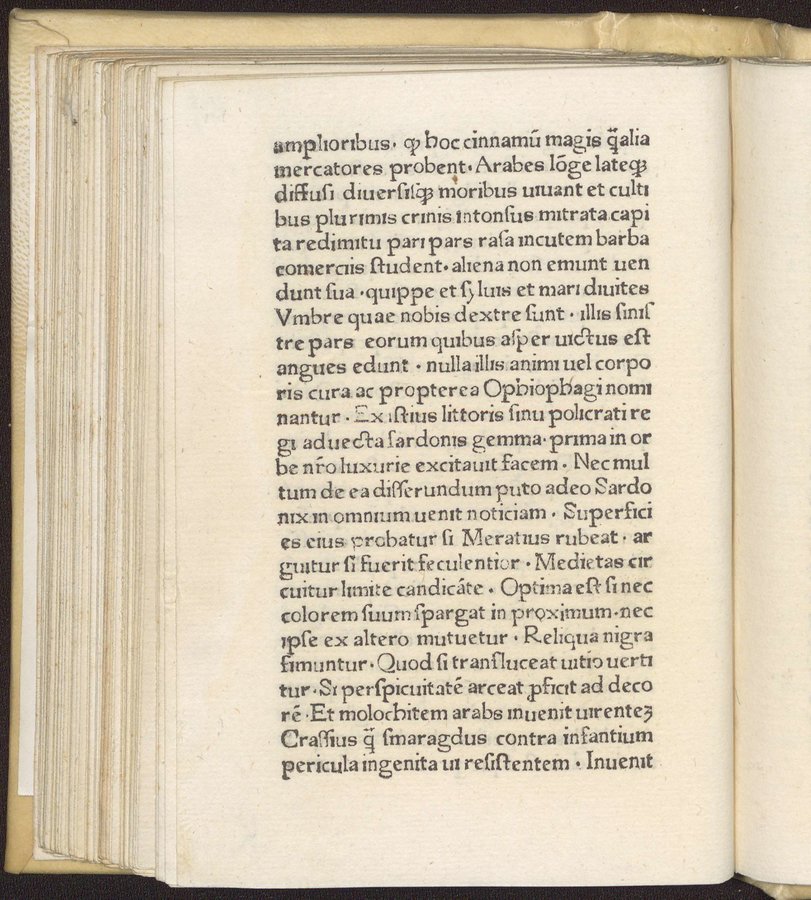 amplioribus· ꝙ hoc cinnamū magis q̄ alia
mercatores probent· Arabes lōge lateqꝫ
diffusi diuersisqꝫ moribus uiuant et culti
bus plurimis crinis intonsus mitrata capi
ta redimitu pari pars rasa incutem barba
comerciis student· aliena non emunt uen
dunt sua ·quippe et syluis et mari diuites
Vmbre quae nobis dextre sunt · illis sinis
tre pars eorum quibus asper uictus est
angues edunt · nulla illis animi uel corpo
ris cura ac propterea Ophiophagi nomi
nantur · Ex istius littoris sinu policrati re
gi aduecta sardonis gemma· prima in or
be nr̄o luxurie excitauit facem · Nec mul
tum de ea disserundum puto adeo Sardo
nix in omnium uenit noticiam · Superfici
es eius probatur si Meratius rubeat · ar
guitur si fuerit feculentior · Medietas cir
cuitur limite candicāte · Optima est si nec
colorem suum spargat in proximum·nec
ipse ex altero mutuetur · Reliqua nigra
fimuntur · Quod si transluceat uitio uerti
tur·Si perspicuitatē arceat ꝓficit ad deco
rē ·Et molochitem arabs inuenit uirenteꝫ
Crassius q̄ smaragdus contra infantium
pericula ingenita ui resistentem · Inuenit